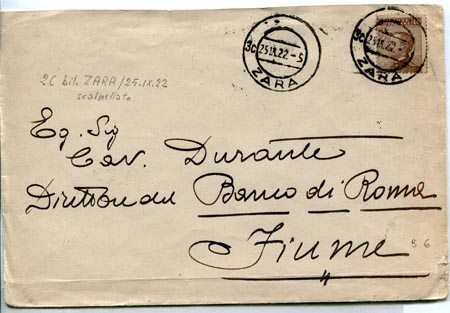 3C 25.IX.22-5
ZARA
3C 25.IX.22-5
ZARA
2C bil. ZARA/25.IX.22
scalpellato
Eg. Sig
Cav. Durante
Direttore del Banco di Roma
Fiume
96